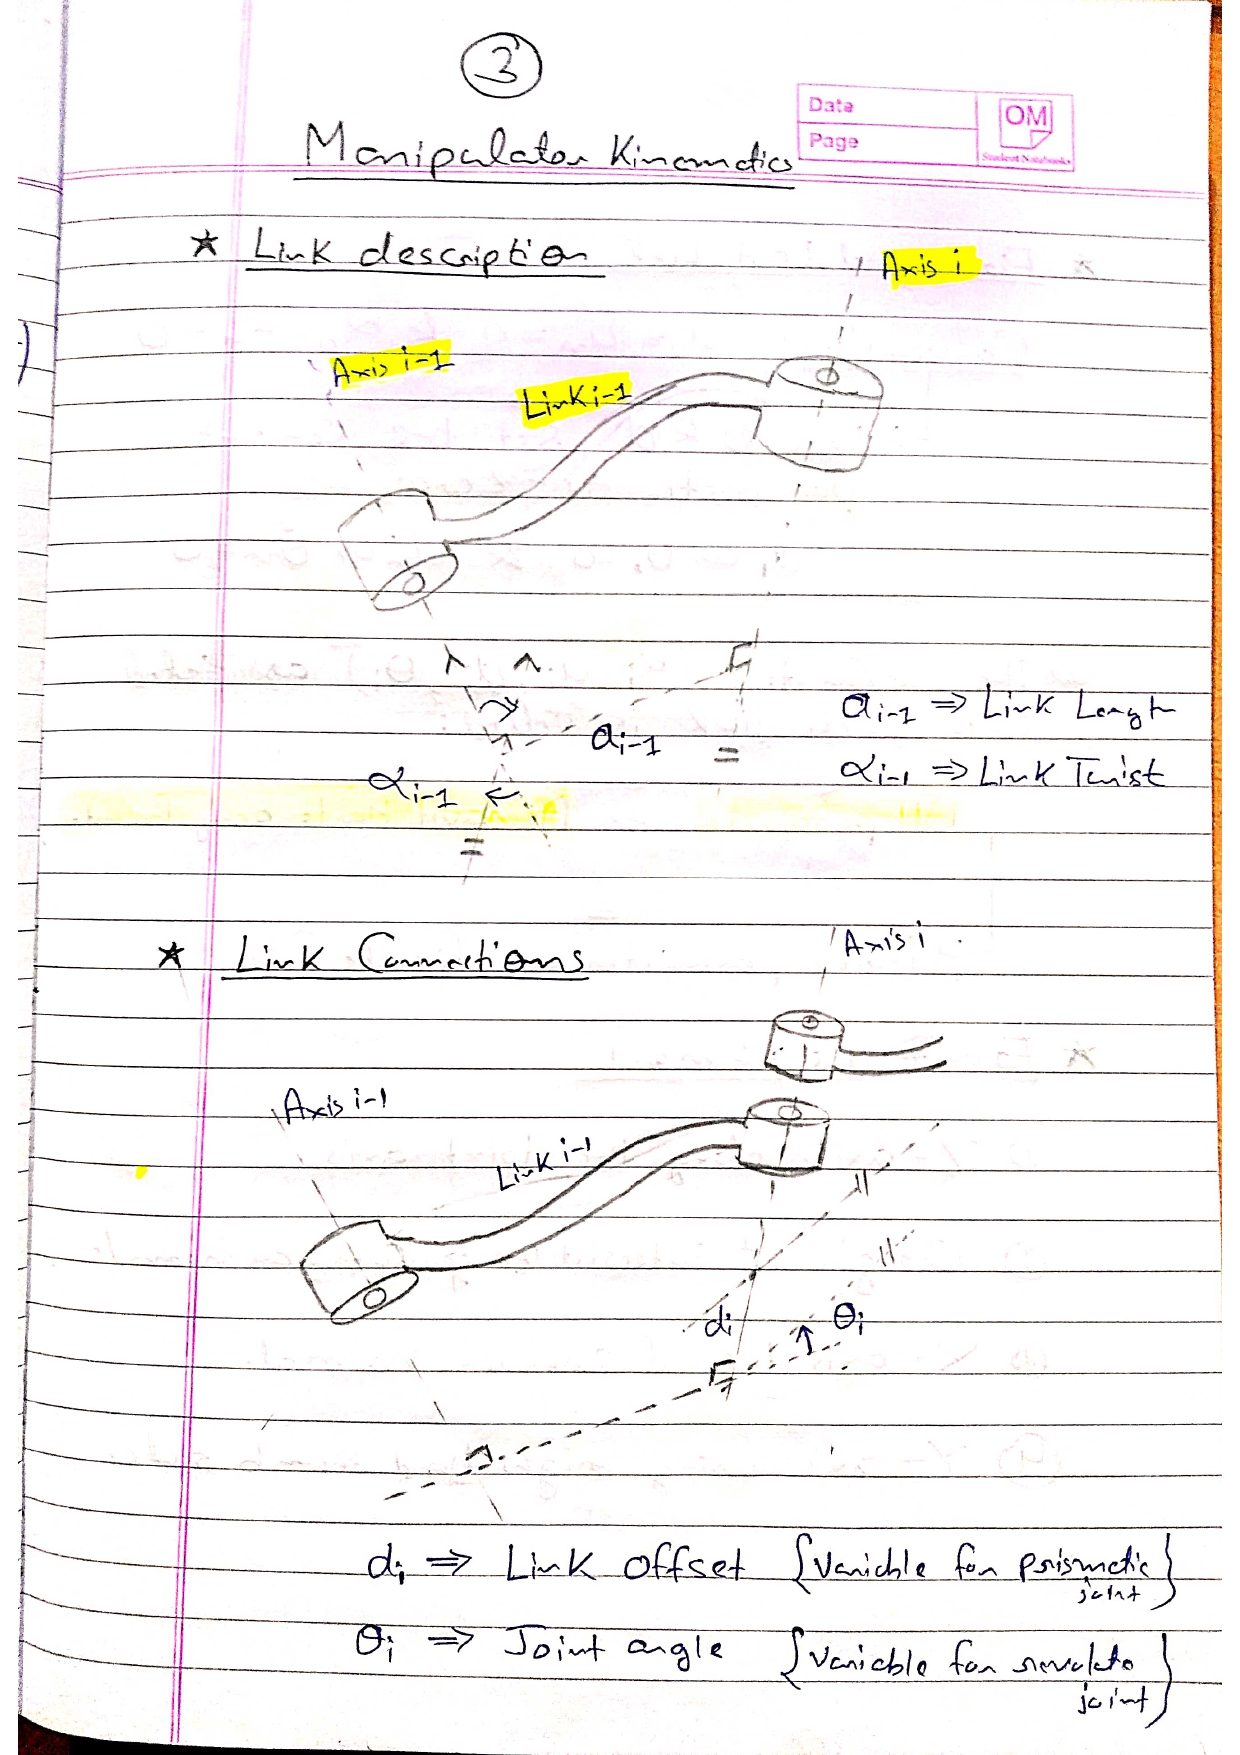 3
Date
Page
OM
Student Notebooks
Manipulator Kinematics
★ Link description
Axis i
Axis i-1
Link i-1
a i-1
a i-1 ⇒ Link Length
α i-1
α i-1 ⇒ Link Twist
★ Link Connections
Axis i
Axis i-1
Link i-1
di
θi
di ⇒ Link offset {variable for prismatic
joint}
θi ⇒ Joint angle {variable for revolute
joint}